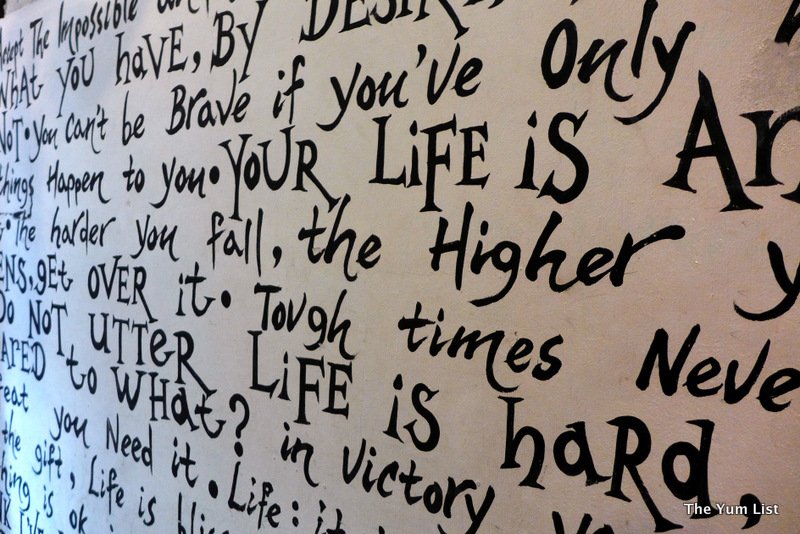 The Impossible
What you have, By DESIRI
NOT • you can't be Brave if you've Only
things Happen to you • YOUR LiFE iS An
• The harder you fall, the Higher y
ENS, gEt OVER it • Tough times Neve
Do NOT UTTER LiFE iS haRd,
ARED to WHat? in victory yo
reat you Need it • Life: it
the gift, Life is bliss
hing is ok
The Yum List